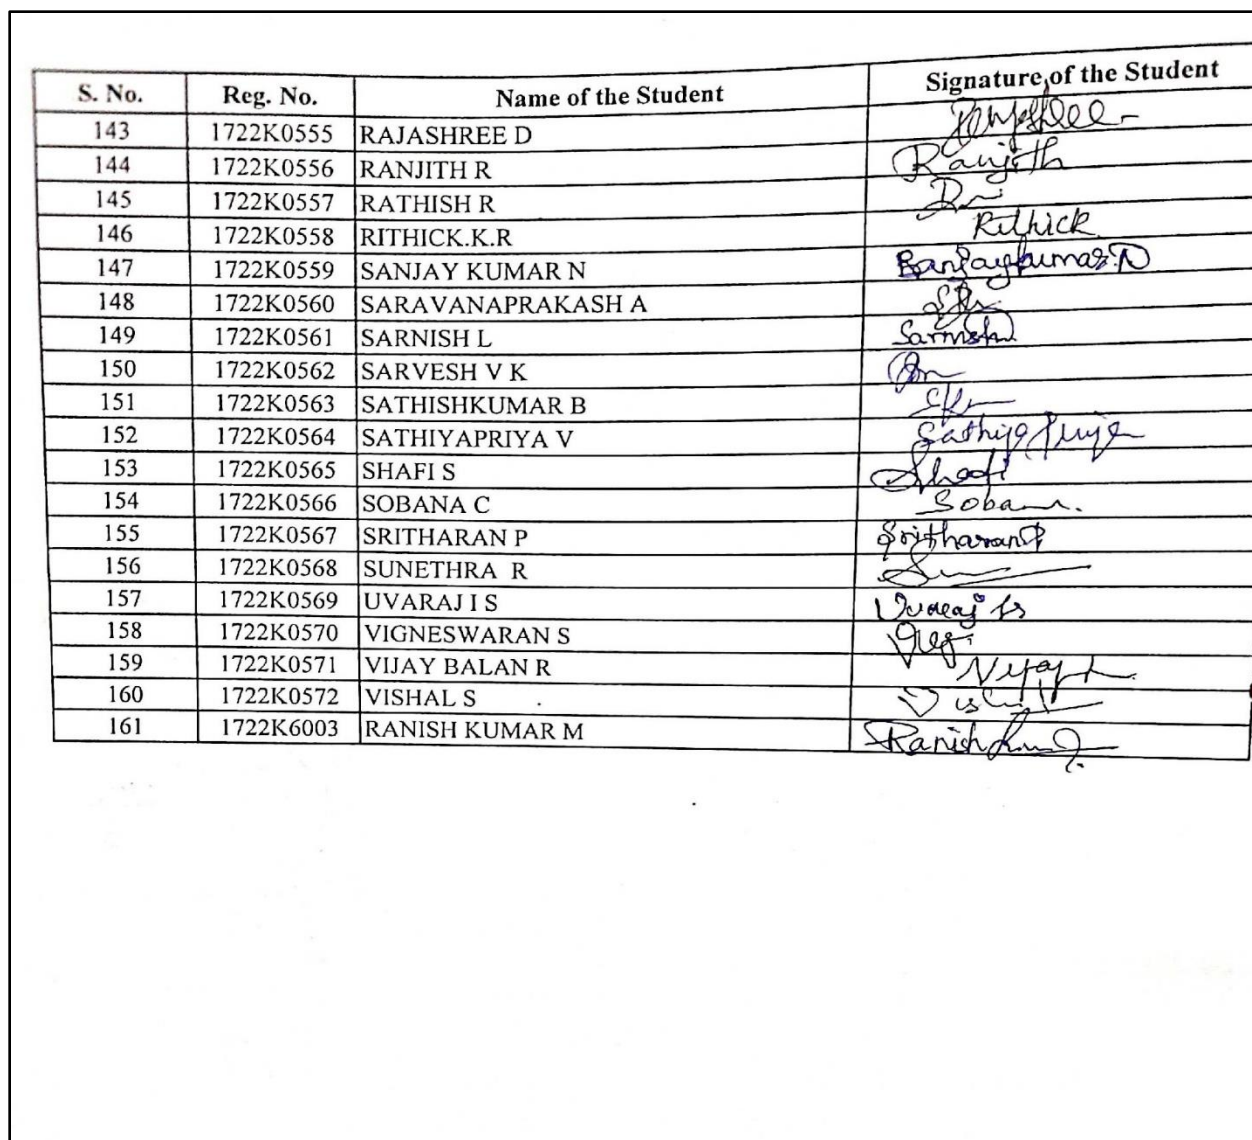 S. No. Reg. No. Name of the Student Signature of the Student
143 1722K0555 RAJASHREE D
144 1722K0556 RANJITH R Ranjith
145 1722K0557 RATHISH R
146 1722K0558 RITHICK.K.R Rithick
147 1722K0559 SANJAY KUMAR N Sanjaykumar.N
148 1722K0560 SARAVANAPRAKASH A
149 1722K0561 SARNISH L Sarnish
150 1722K0562 SARVESH V K
151 1722K0563 SATHISHKUMAR B
152 1722K0564 SATHIYAPRIYA V Sathiyapriya
153 1722K0565 SHAFI S Shafi
154 1722K0566 SOBANA C
155 1722K0567 SRITHARAN P SritharanP
156 1722K0568 SUNETHRA R
157 1722K0569 UVARAJ I S Uvaraj IS
158 1722K0570 VIGNESWARAN S
159 1722K0571 VIJAY BALAN R
160 1722K0572 VISHAL S
161 1722K6003 RANISH KUMAR M